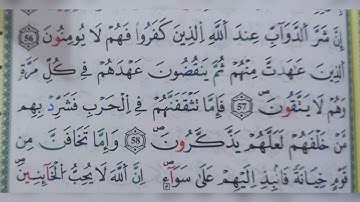 إِنَّ شَرَّ الدَّوَآبِّ عِندَ اللَّهِ الَّذِينَ كَفَرُوا فَهُمْ لَا يُؤْمِنُونَ 56
الَّذِينَ عَاهَدتَّ مِنْهُمْ ثُمَّ يَنقُضُونَ عَهْدَهُمْ فِي كُلِّ مَرَّةٍ
وَهُمْ لَا يَتَّقُونَ 57 فَإِمَّا تَثْقَفَنَّهُمْ فِي الْحَرْبِ فَشَرِّدْ بِهِم
مَّنْ خَلْفَهُمْ لَعَلَّهُمْ يَذَّكَّرُونَ 58 وَإِمَّا تَخَافَنَّ مِن
قَوْمٍ خِيَانَةً فَانبِذْ إِلَيْهِمْ عَلَى سَوَآءٍ إِنَّ اللَّهَ لَا يُحِبُّ الْخَآئِنِينَ